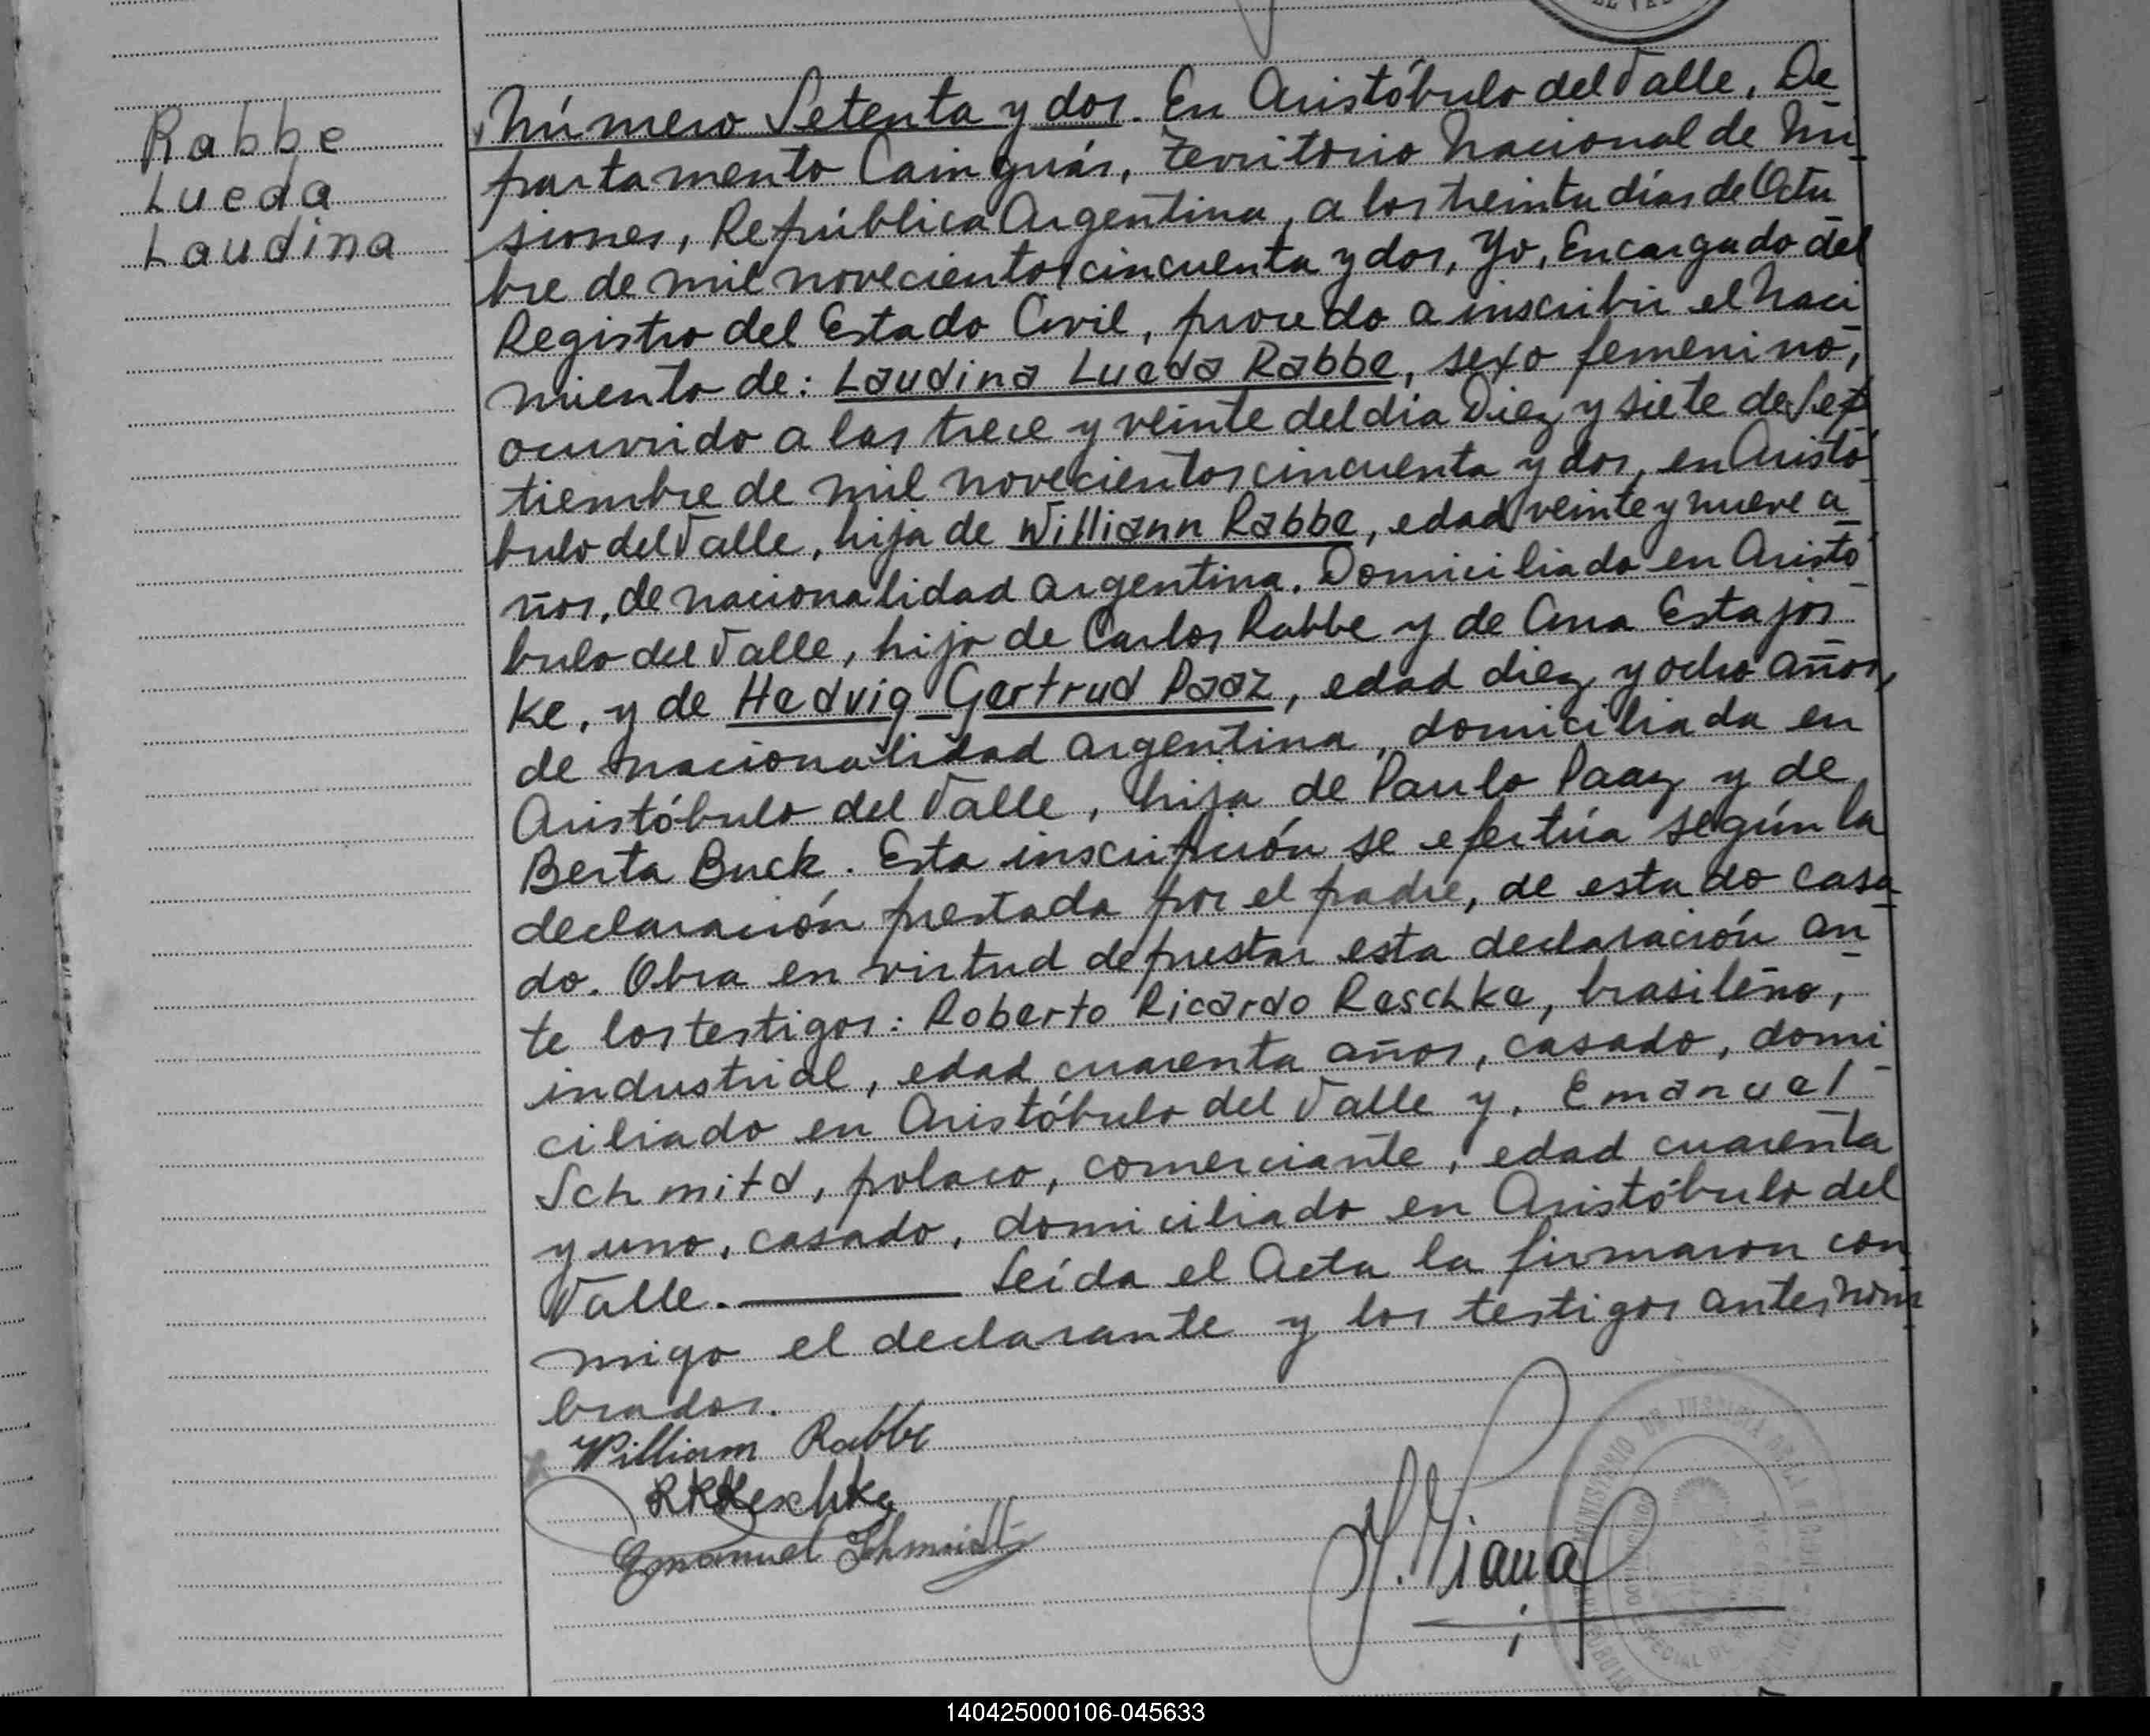 Rabbe
Lueda
Laudina
Número Setenta y dos. En Aristóbulo del Valle, De
partamento Cainguás, territorio Nacional de Mi
siones, República Argentina, a los treinta días de Octu
bre de mil novecientos cincuenta y dos, Yo, Encargado del
Registro del Estado Civil, procedo a inscribir el naci
miento de: Laudina Lueda Rabbe, sexo femenino,
ocurrido a las trece y veinte del día Diez y siete de Sep
tiembre de mil novecientos cincuenta y dos, en Aristó
bulo del Valle, hija de Williann Rabbe, edad veinte y nueve a
ños, de nacionalidad argentina. Domiciliado en Aristó
bulo del Valle, hijo de Carlos Rabbe y de Ana Estajos
ke, y de Hedvig Gertrud Paaz, edad diez y ocho años,
de nacionalidad argentina, domiciliada en
Aristóbulo del Valle, hija de Paulo Paaz y de
Berta Buck. Esta inscripción se efectúa según la
declaración prestada por el padre, de estado casa
do. Obra en virtud de prestar esta declaración an
te los testigos: Roberto Ricardo Reschke, brasileño,
industrial, edad cuarenta años, casado, domi
ciliado en Aristóbulo del Valle y, Emanuel
Schmitd, polaco, comerciante, edad cuarenta
y uno, casado, domiciliado en Aristóbulo del
Valle. Leída el Acta la firmaron con
migo el declarante y los testigos antes nom
brados.
William Rabbe
RRReschke
Emanuel Schmidt
140425000106-045633